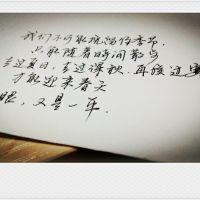 我们不可能挽留住季节，
只能随着时间散步
走过夏日，走过深秋，再度过寒
才能迎来春天
眼，又是一年.